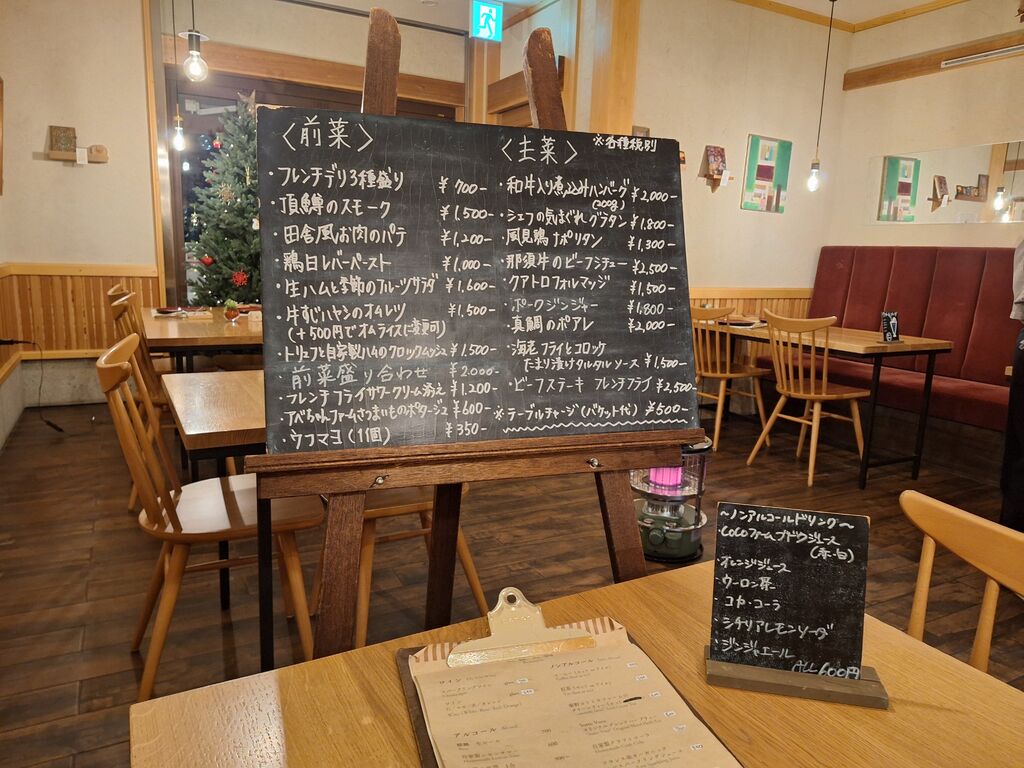 〈前菜〉
・フレンチデリ3種盛り ¥700-
・頂鱒のスモーク ¥1,500-
・田舎風お肉のパテ ¥1,200-
・鶏白レバーペースト ¥1,000-
・生ハムと季節のフルーツサラダ ¥1,600-
・牛すじハヤシのオムレツ ¥1,500-
(+500円でオムライスに変更可)
・トリュフと自家製ハムのクロックムッシュ ¥1,500-
・前菜盛り合わせ ¥2,000-
・フレンチフライサワークリーム添え ¥1,200-
・アベちゃんファームさつまいものポタージュ ¥600-
・ウフマヨ(1個) ¥350-
※各種税別
〈主菜〉
・和牛入り煮込みハンバーグ ¥2,000-
(200g)
・シェフの気まぐれグラタン ¥1,800-
・風見鶏ナポリタン ¥1,300-
・那須牛のビーフシチュー ¥2,500-
・クアトロフォルマッジ ¥1,500-
・ポークジンジャー ¥1,800-
・真鯛のポアレ ¥2,000-
・海老フライとコロッケ
たまり漬けタルタルソース ¥1,500-
・ビーフステーキ フレンチフライ ¥2,500-
※テーブルチャージ(バケット代) ¥500-
～ノンアルコールドリンク～
・COCOファームブドウジュース
(赤・白)
・オレンジジュース
・ウーロン茶
・コカ・コーラ
・シチリアレモンソーダ
・ジンジャエール
ALL 600円
ワイン
ノンアルコール
アルコール